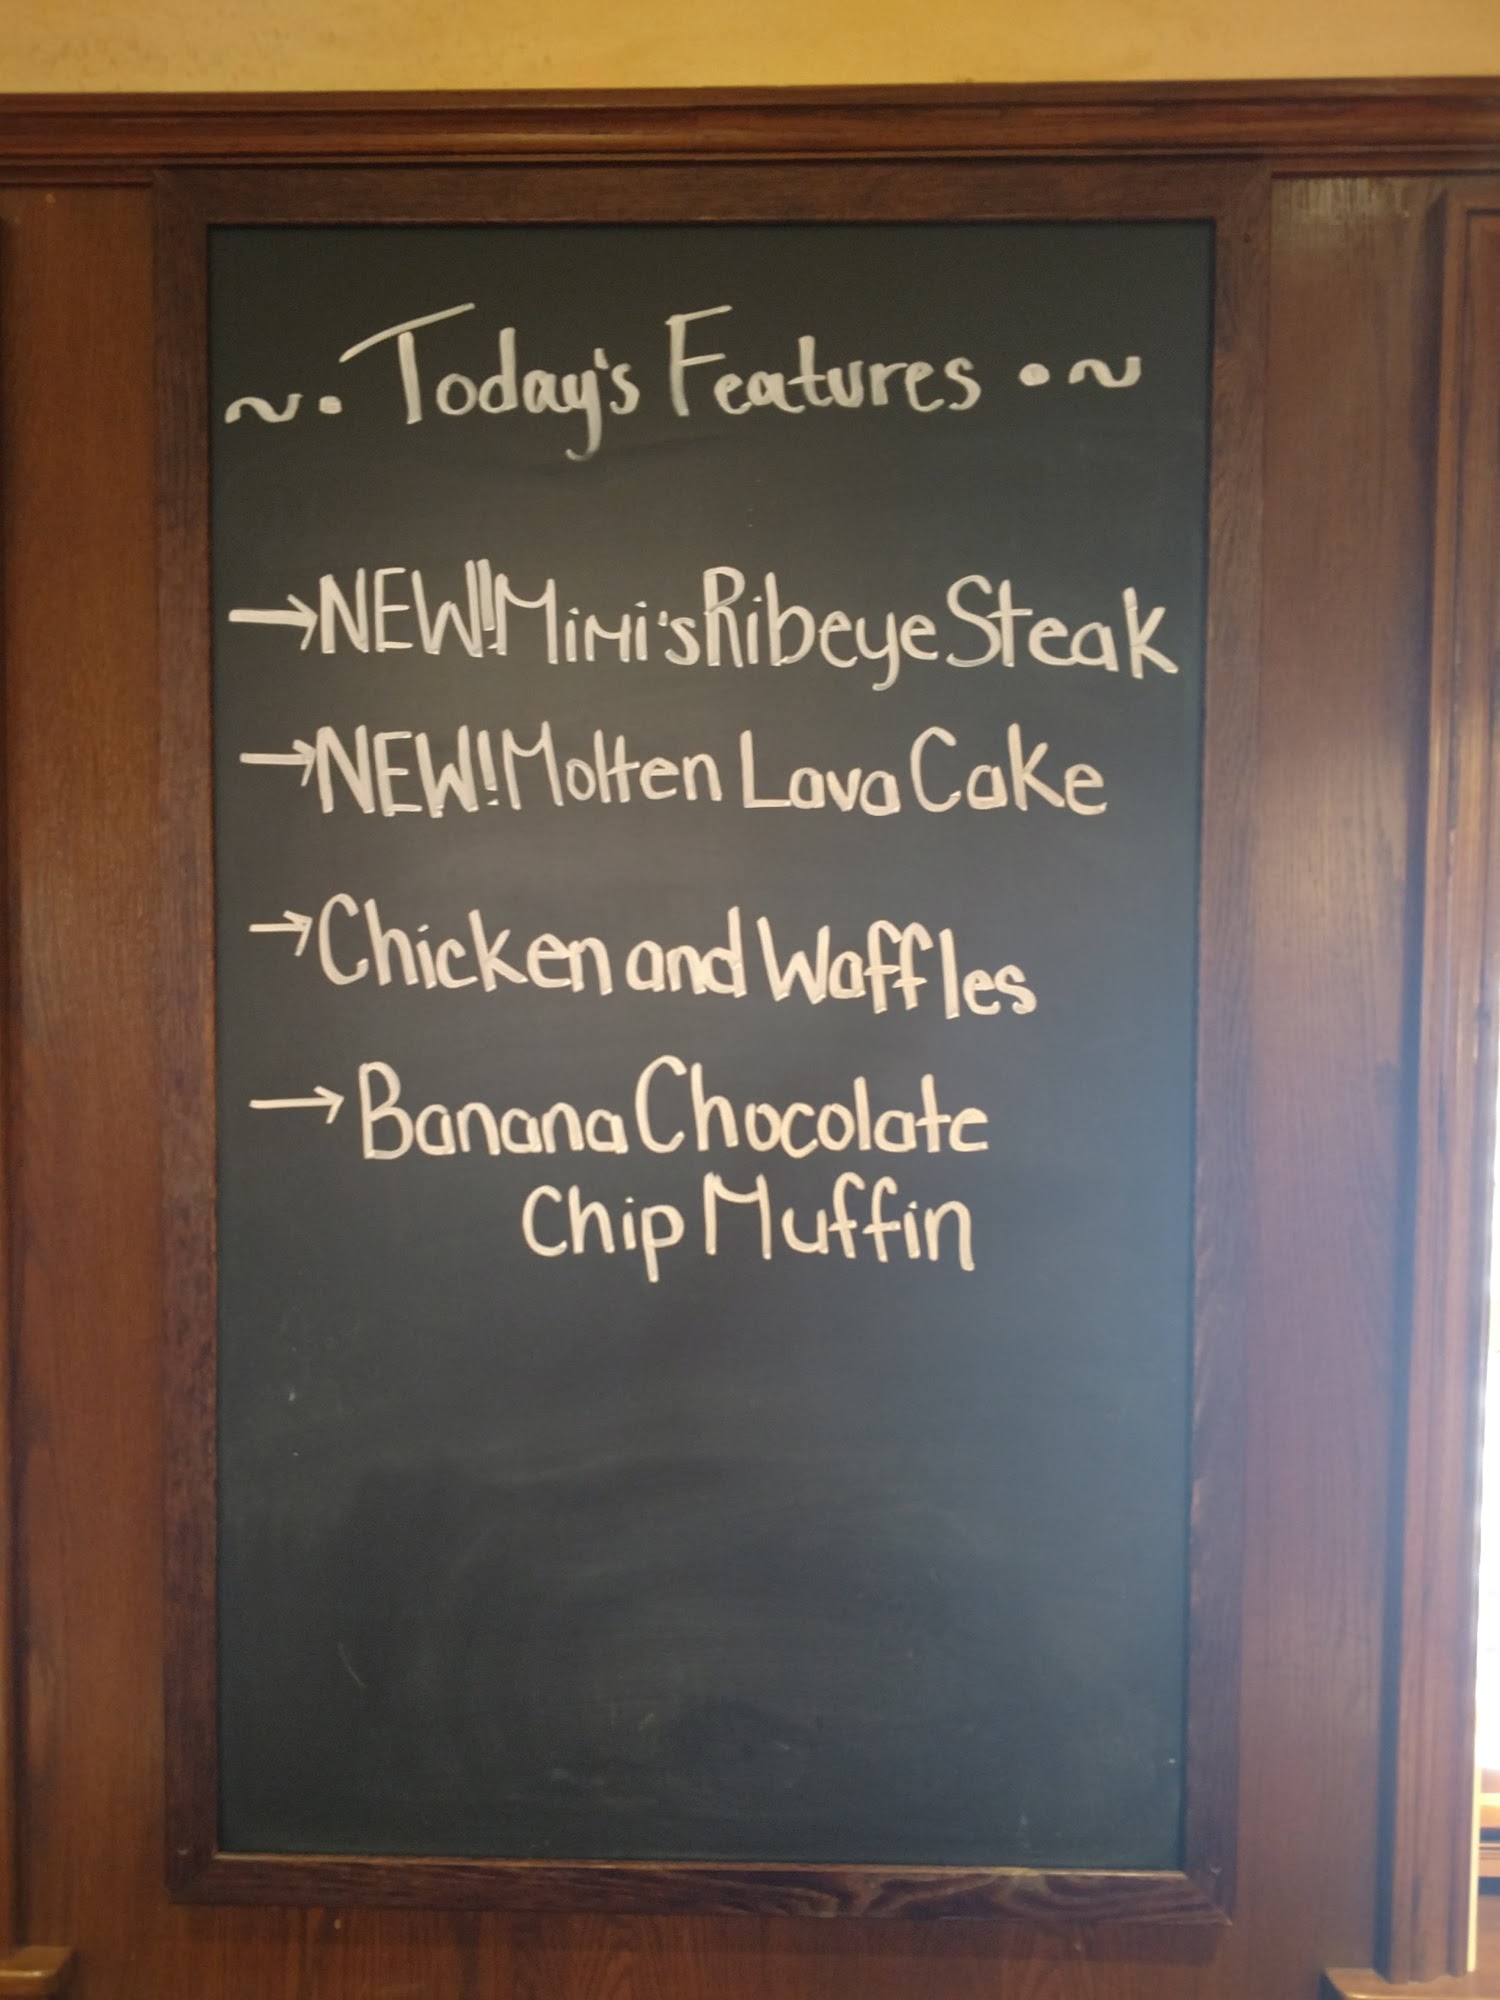 ~• Today's Features •~
→ NEW! Mimi's Ribeye Steak
→ NEW! Molten Lava Cake
→ Chicken and Waffles
→ Banana Chocolate
Chip Muffin